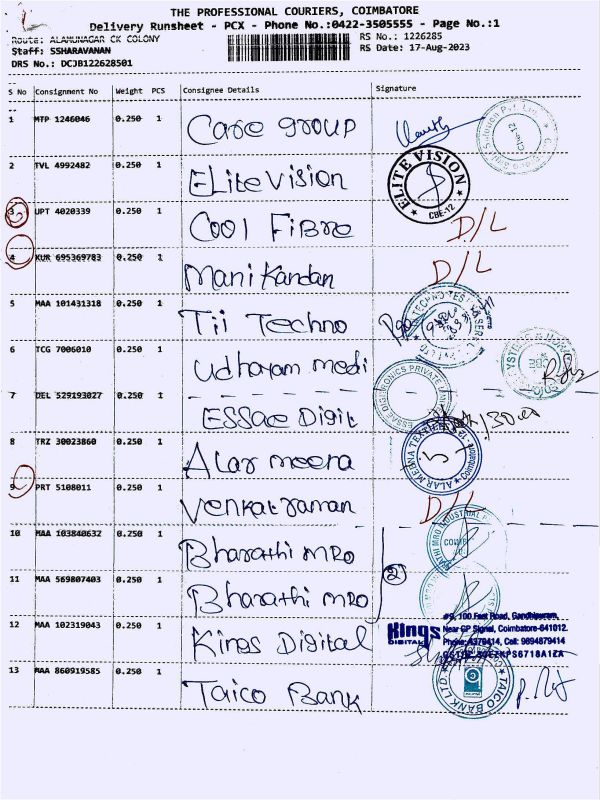 THE PROFESSIONAL COURIERS, COIMBATORE
Delivery Runsheet - PCX - Phone No.:0422-3505555 - Page No.:1
Route: ALAMUNAGAR CK COLONY
RS No.: 1226285
Staff: SSHARAVANAN
RS Date: 17-Aug-2023
DRS No.: DCJB122628501
S No Consignment No Weight PCS Consignee Details Signature
1 MTP 1246046 0.250 1 Care group
2 TVL 4992482 0.250 1 Elite Vision
ELITE VISION CBE-12
3 UPT 4020339 0.250 1 Cool Fibre D/L
4 KUR 695369783 0.250 1 Mani Kandan D/L
5 MAA 101431318 0.250 1 Tii Techno
6 TCG 7006010 0.250 1 Udhayam medi
7 DEL 529193027 0.250 1 ESSae Digit
ESSAE DIGITRONICS PRIVATE
8 TRZ 30023860 0.250 1 Alar meena
9 PRT 5108011 0.250 1 Venkat raman D/L
10 MAA 103840632 0.250 1 Bharathi MRO
2
11 MAA 569807403 0.250 1 Bharathi MRO
12 MAA 102319043 0.250 1 Kings Digital
Kings DIGITAL
#9, 100 Feet Road, Gandhipuram,
Near GP Signal, Coimbatore-641012.
Phone: 4379414, Cell: 9894879414
13 MAA 860919585 0.250 1 Taico Bank
TAICO BANK LTD.